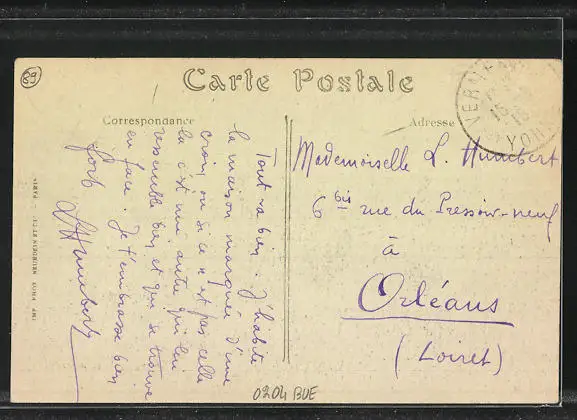 89
Carte Postale
Correspondance
Adresse
Tout va bien. J'habite
la maison marquée d'une
croix, ou si ce n'est pas celle
là c'est une autre qui lui
ressemble bien et qui se trouve
en face. Je t'embrasse bien
fort
LHumbert
Mademoiselle L. Humbert
6 bis rue du Pressoir-neuf
à
Orléans
(Loiret)
YON
IMP. PHOT. NEURDEIN ET CIE - PARIS
0204 BUE